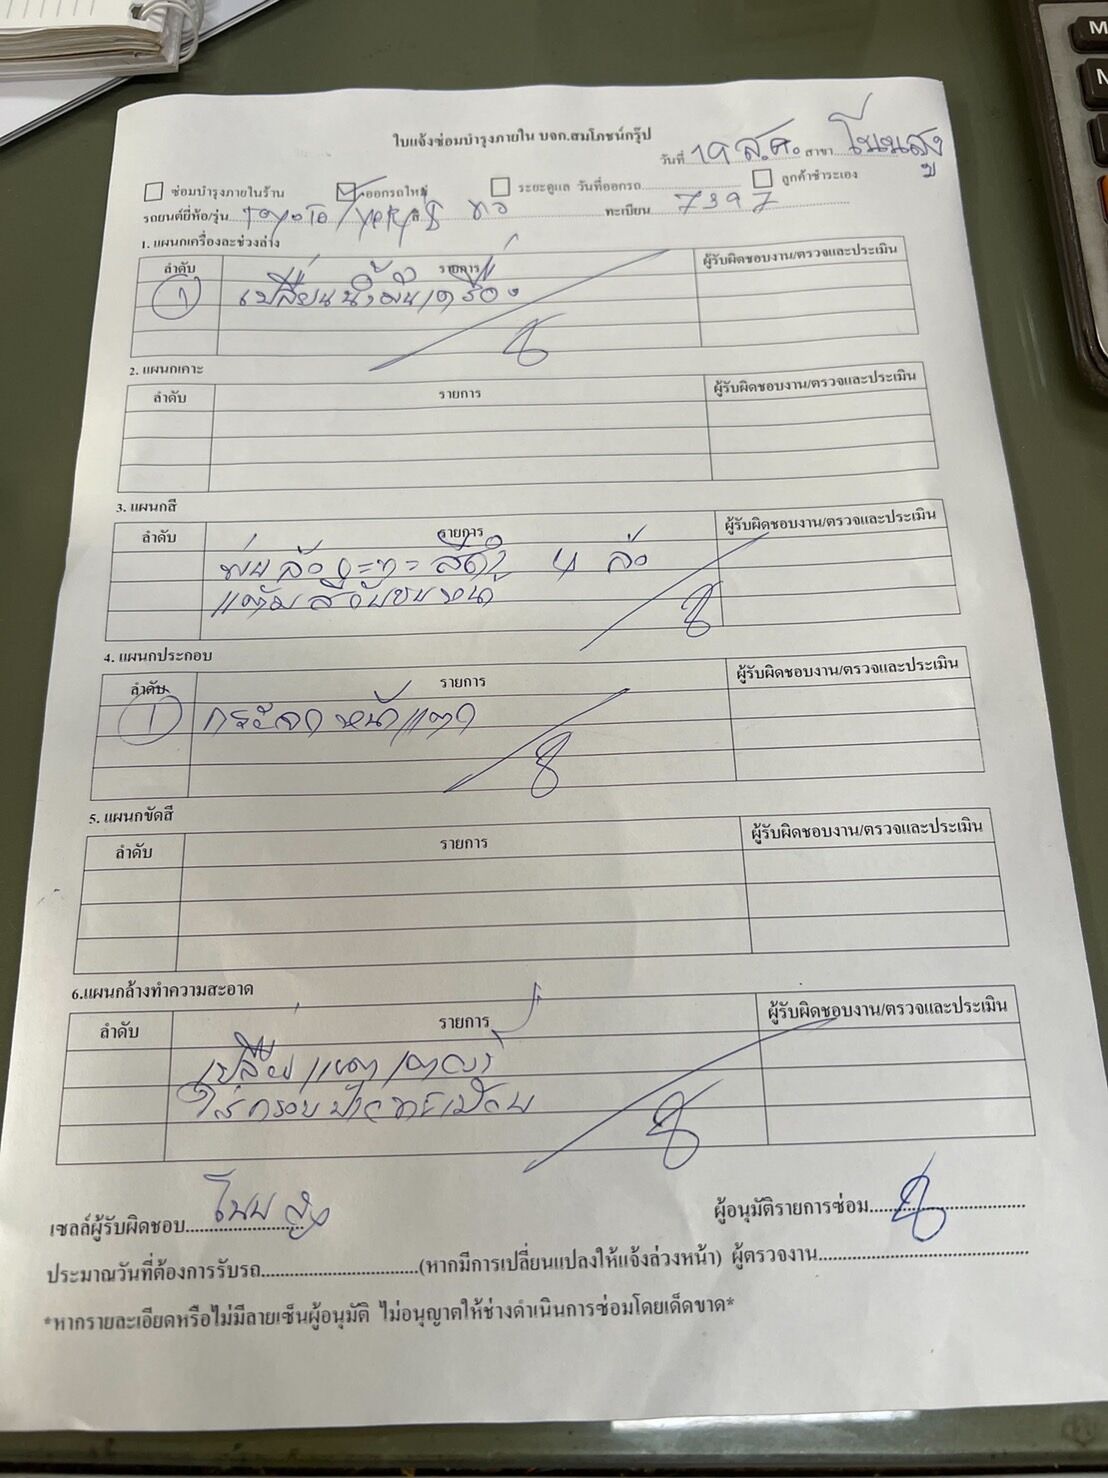 ใบแจ้งซ่อมบำรุงภายใน บจก.สมโภชน์กรุ๊ป
วันที่ 19 ส.ค. สาขา โนนสูง
ซ่อมบำรุงภายในร้าน ออกรถใหม่ ระยะดูแล วันที่ออกรถ ลูกค้าชำระเอง
รถยนต์ยี่ห้อ/รุ่น Toyota / yaris สี ทะเบียน 7397
1. แผนกเครื่องละช่วงล่าง
ลำดับ รายการ ผู้รับผิดชอบงาน/ตรวจและประเมิน
1 เปลี่ยนน้ำมันเครื่อง
2. แผนกเคาะ
ลำดับ รายการ ผู้รับผิดชอบงาน/ตรวจและประเมิน
3. แผนกสี
ลำดับ รายการ ผู้รับผิดชอบงาน/ตรวจและประเมิน
พ่นล้อ กะทะ สีดำ 4 ล้อ
แต้มสี
4. แผนกประกอบ
ลำดับ รายการ ผู้รับผิดชอบงาน/ตรวจและประเมิน
1 กระจกหน้าแตก
5. แผนกขัดสี
ลำดับ รายการ ผู้รับผิดชอบงาน/ตรวจและประเมิน
6.แผนกล้างทำความสะอาด
ลำดับ รายการ ผู้รับผิดชอบงาน/ตรวจและประเมิน
ใส่กรอบป้ายทะเบียน
เซลล์ผู้รับผิดชอบ โนนสูง ผู้อนุมัติรายการซ่อม
ประมาณวันที่ต้องการรับรถ (หากมีการเปลี่ยนแปลงให้แจ้งล่วงหน้า) ผู้ตรวจงาน
*หากรายละเอียดหรือไม่มีลายเซ็นผู้อนุมัติ ไม่อนุญาตให้ช่างดำเนินการซ่อมโดยเด็ดขาด*